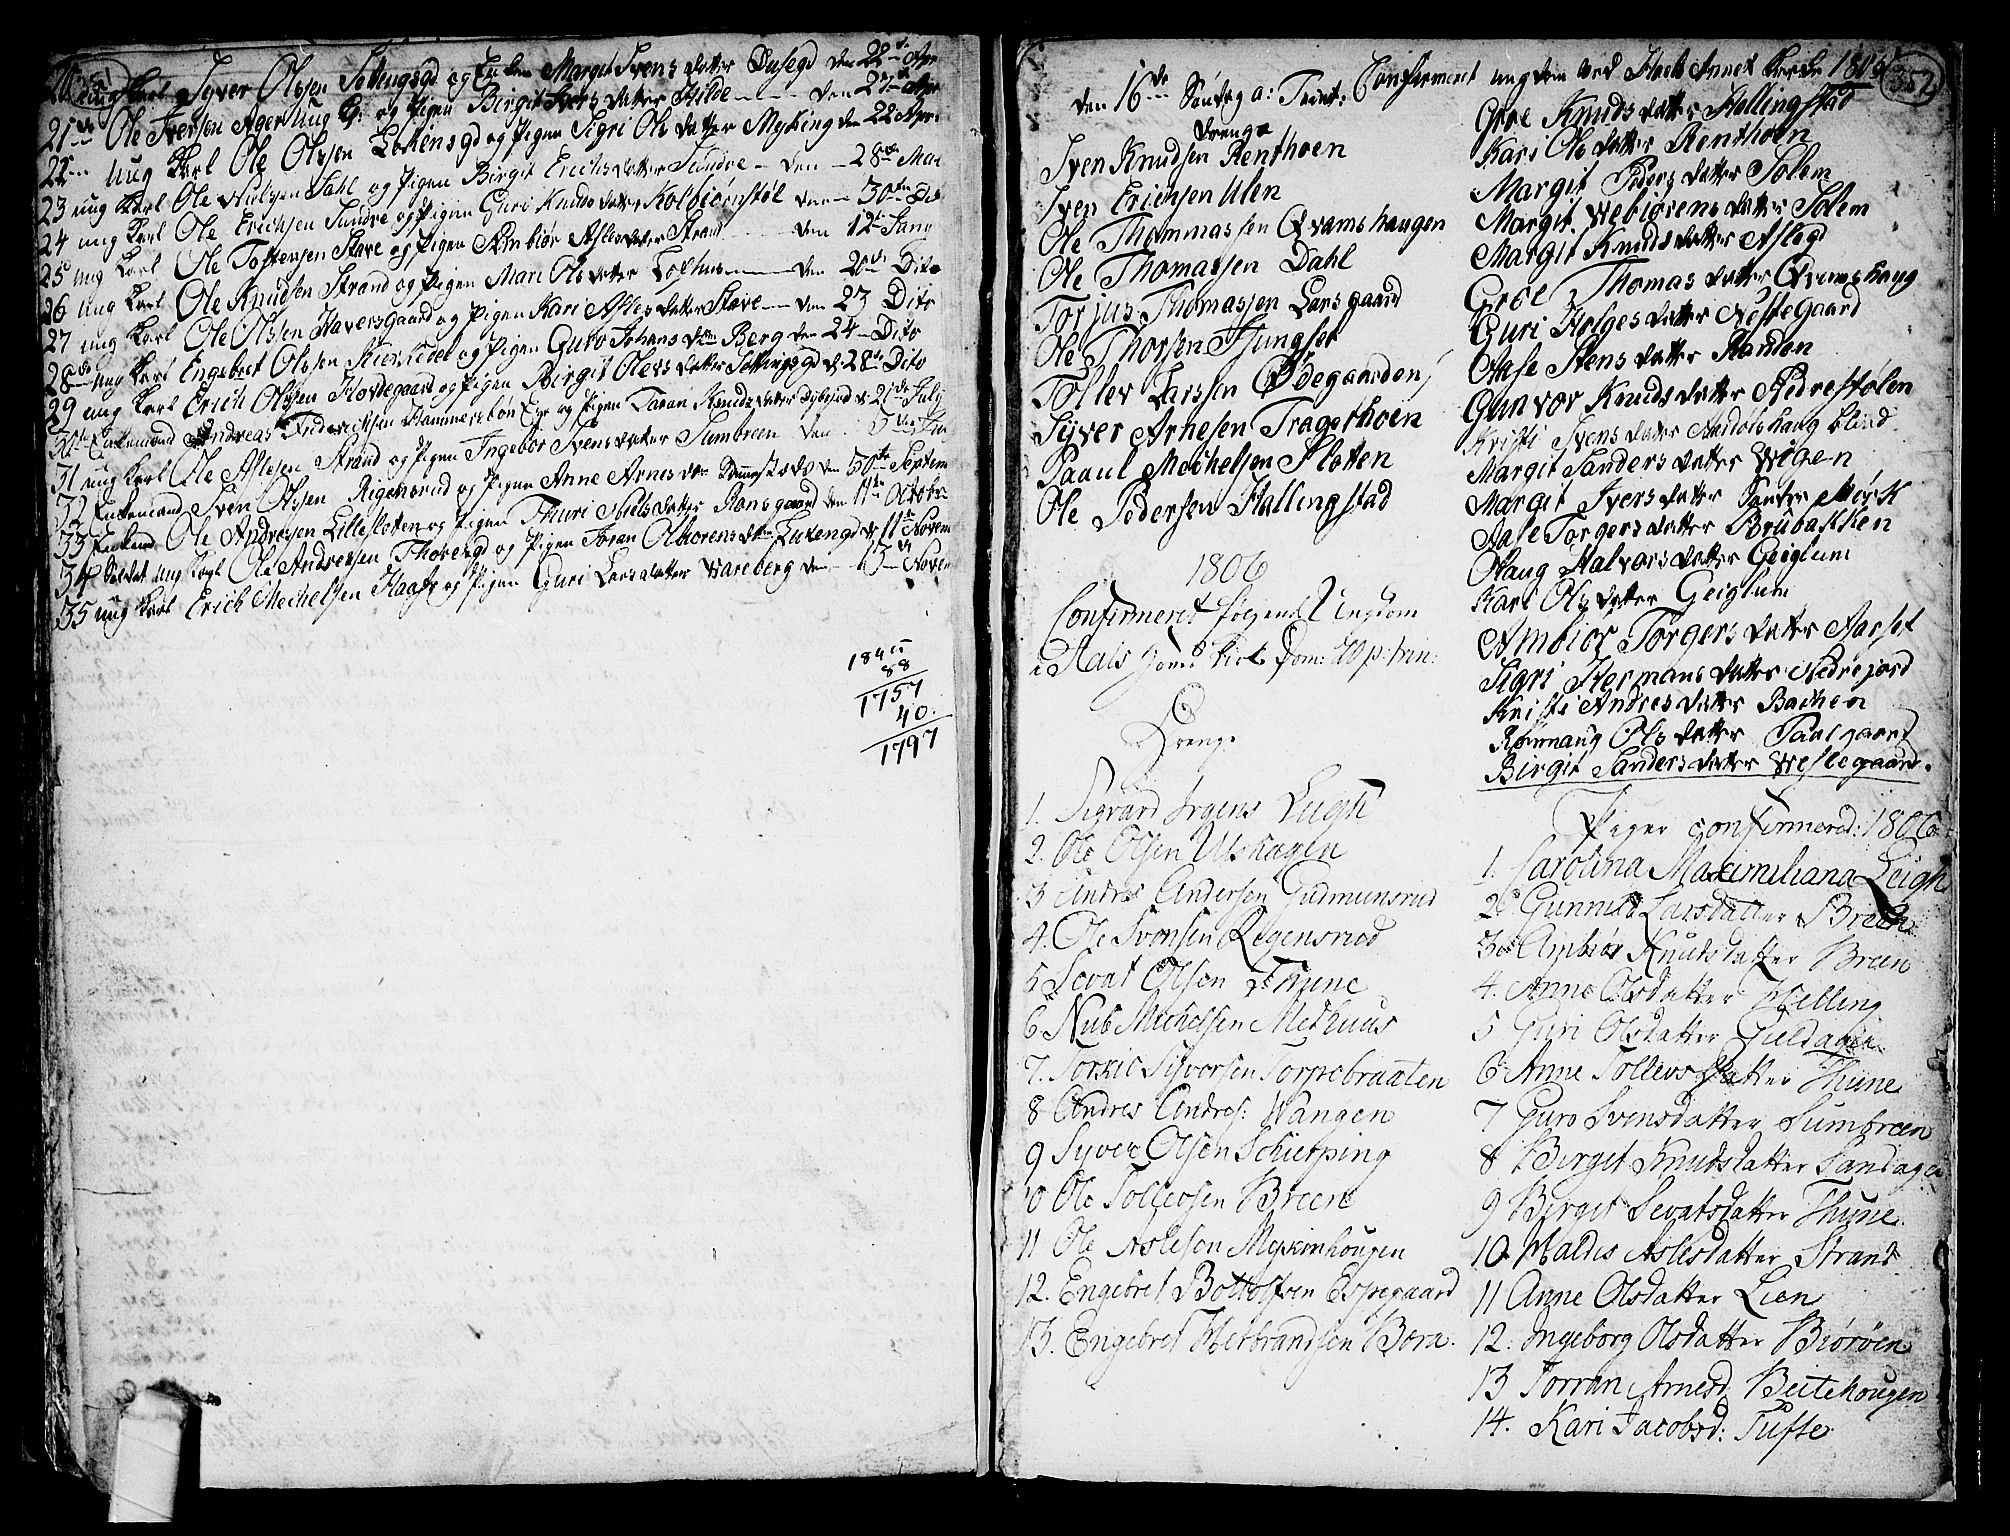 ung Karl Syver Olsen Settungsgd og Enken Margit Svens datter Dusegd den 22de Apr
21de Ole Iversen Ager ung K: og Pigen Birgit Ivers datter Hilde den 27de Apr
22 ung Karl Ole Olssen Løkensgd og Pigen Sigri Ols datter Myking den 22 Apr:
23 ung Karl Ole Nielsen Dahl og Pigen Birgit Erichs datter Sundre den 28de Mai
24 ung Karl Ole Erichsen Sundre og Pigen Guri Knuds datter Kolbiørnstøl den 30te Dito
25 ung Karl Ole Tostensen Stave og Pigen Ambiør Asles datter Strand den 12te Juny
26 ung Karl Ole Knudsen Strand og Pigen Mari Ols datter Tolhus den 20de Dito
27 ung Karl Ole Olssen Haversgaard og Pigen Kari Asles datter Stave den 23 Dito
28de ung Karl Engebret Olssen og Pigen Guro Johans dtr Berg den 24 Dito
29 ung Karl Erich Olssen Hovdegaard og Pigen Birgit Olers datter Settungsgd d: 28de Dito
30te Enkemand Andreas Friderichsen Hammersbøn og Pigen Taran Knuds datter d: 21de July
31 ung Karl Ole Aslesen Strand og Pigen Ingebor Svens datter Sumbreen den
32 Enkemand Sven Olssen Rigensrud og Pigen Anne Arnes dtr den 30te Septem
33 Enkemd Ole Andresen Lilleslotten og Pigen Thuri Niels datter Ransgaard den 11te Octobr
34 Soldat ung Karl Ole Andresen Thoresgd og Pigen Joran Olstorens dtr d: 11te Novem
35 ung Karl Erich Michelsen Haaf og Pigen Guri Lars datter Wareberg den 13de Novem
1845
88
1757
40.
1797
352
den 16de Søndag a: Trinit: Confirmeret ungdom ved Hoels Annex Kirke 1805
Drenge
Sven Knudsen Renthoen
Sven Erichsen Ulen
Ole Thommassen Qvamshaugen
Ole Thomassen Dahl
Torjus Thomassen Larsgaard
Ole Thorsen Hungset
Tollev Larssen Ødegaarden
Syver Arnesen Tragethoen
Paaul Mechelsen Slotten
Ole Pedersen Hallingstad
1806
Confirmeret følgende Ungdom
i Aals Hoved Kirke Dom: 20 p: trin:
Drenge
1. Sigvard Jrgens Leigh
2. Ole Olsen Ulshagen
3 Andres Andersen Gudmunsrud
4. Ole Svensen Regensrud
5 Sevat Olsen Thune
6 Nub Michelsen Medhuus
7. Torkil Syversen Torpebraaten
8 Andres Andres: Wangen
9 Syver Olsen Schierping
10 Ole Tollevsen Breen
11 Ole Aslesen Myskinhougen
12. Engebret Bottolfsen Espegaard
13. Engebret Herbrandsen Børa.
Groe Knuds datter Hallingstad
Kari Ols datter Renthoen
Margit Peders datter Solem
Margit Webiørens datter Solem
Margit Knuds datter Aslegd
Groe Thomas datter Qvamshaug
Guri Helges datter Nestegaard
Aase Stens datter Randen
Gunvor Knuds datter Nedrestølen
Kristi Svens datter Andolshaug blind.
Margit Sanders datter Wigen
Margit Ivers datter Søntre Mørk
Aase Torgers datter Brubakken
Olaug Halvors datter Geiglum
Kari Ols datter Geiglum
Ambiør Torgers datter Aarset
Sigri Hermans datter Nedrejord
Kristi Andres datter Bachen
Rønnaug Ols datter Paalgaard
Birgit Sanders datter Weslegaard.
Piger confirmered: 1806
1. Carolina Maximiliana Leigh
2. Gunnild Larsdatter Breen
3. Ambiør Knutsdatter Breen
4. Anne Olsdatter Helling
5 Guri Olsdatter Gieldagir
6 Anne Tollevsdatter Thune
7 Guro Svensdatter Sumbreen
8 Birget Knutsdatter Sandager
9 Birget Sevatsdatter Thune
10 Waldis Aslesdatter Strand
11 Anne Olsdatter Lien
12. Ingeborg Olsdatter Biørøen
13 Jorran Arnesd Beitehougen
14. Kari Jacobsd: Tufte